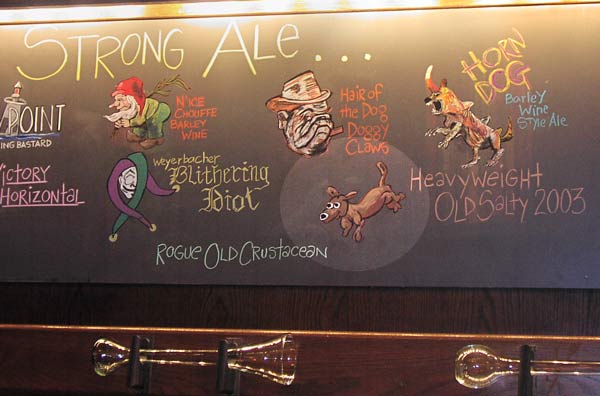 STRONG ALE...
POINT
ING BASTARD
N'ICE
CHOUFFE
BARLEY
WINE
HAIR OF
THE DOG
DOGGY
CLAWS
HORN
DOG
BARLEY
WINE
STYLE ALE
VICTORY
HORIZONTAL
WEYERBACHER
Blithering
Idiot
HEAVYWEIGHT
OLD SALTY 2003
ROGUE OLD CRUSTACEAN